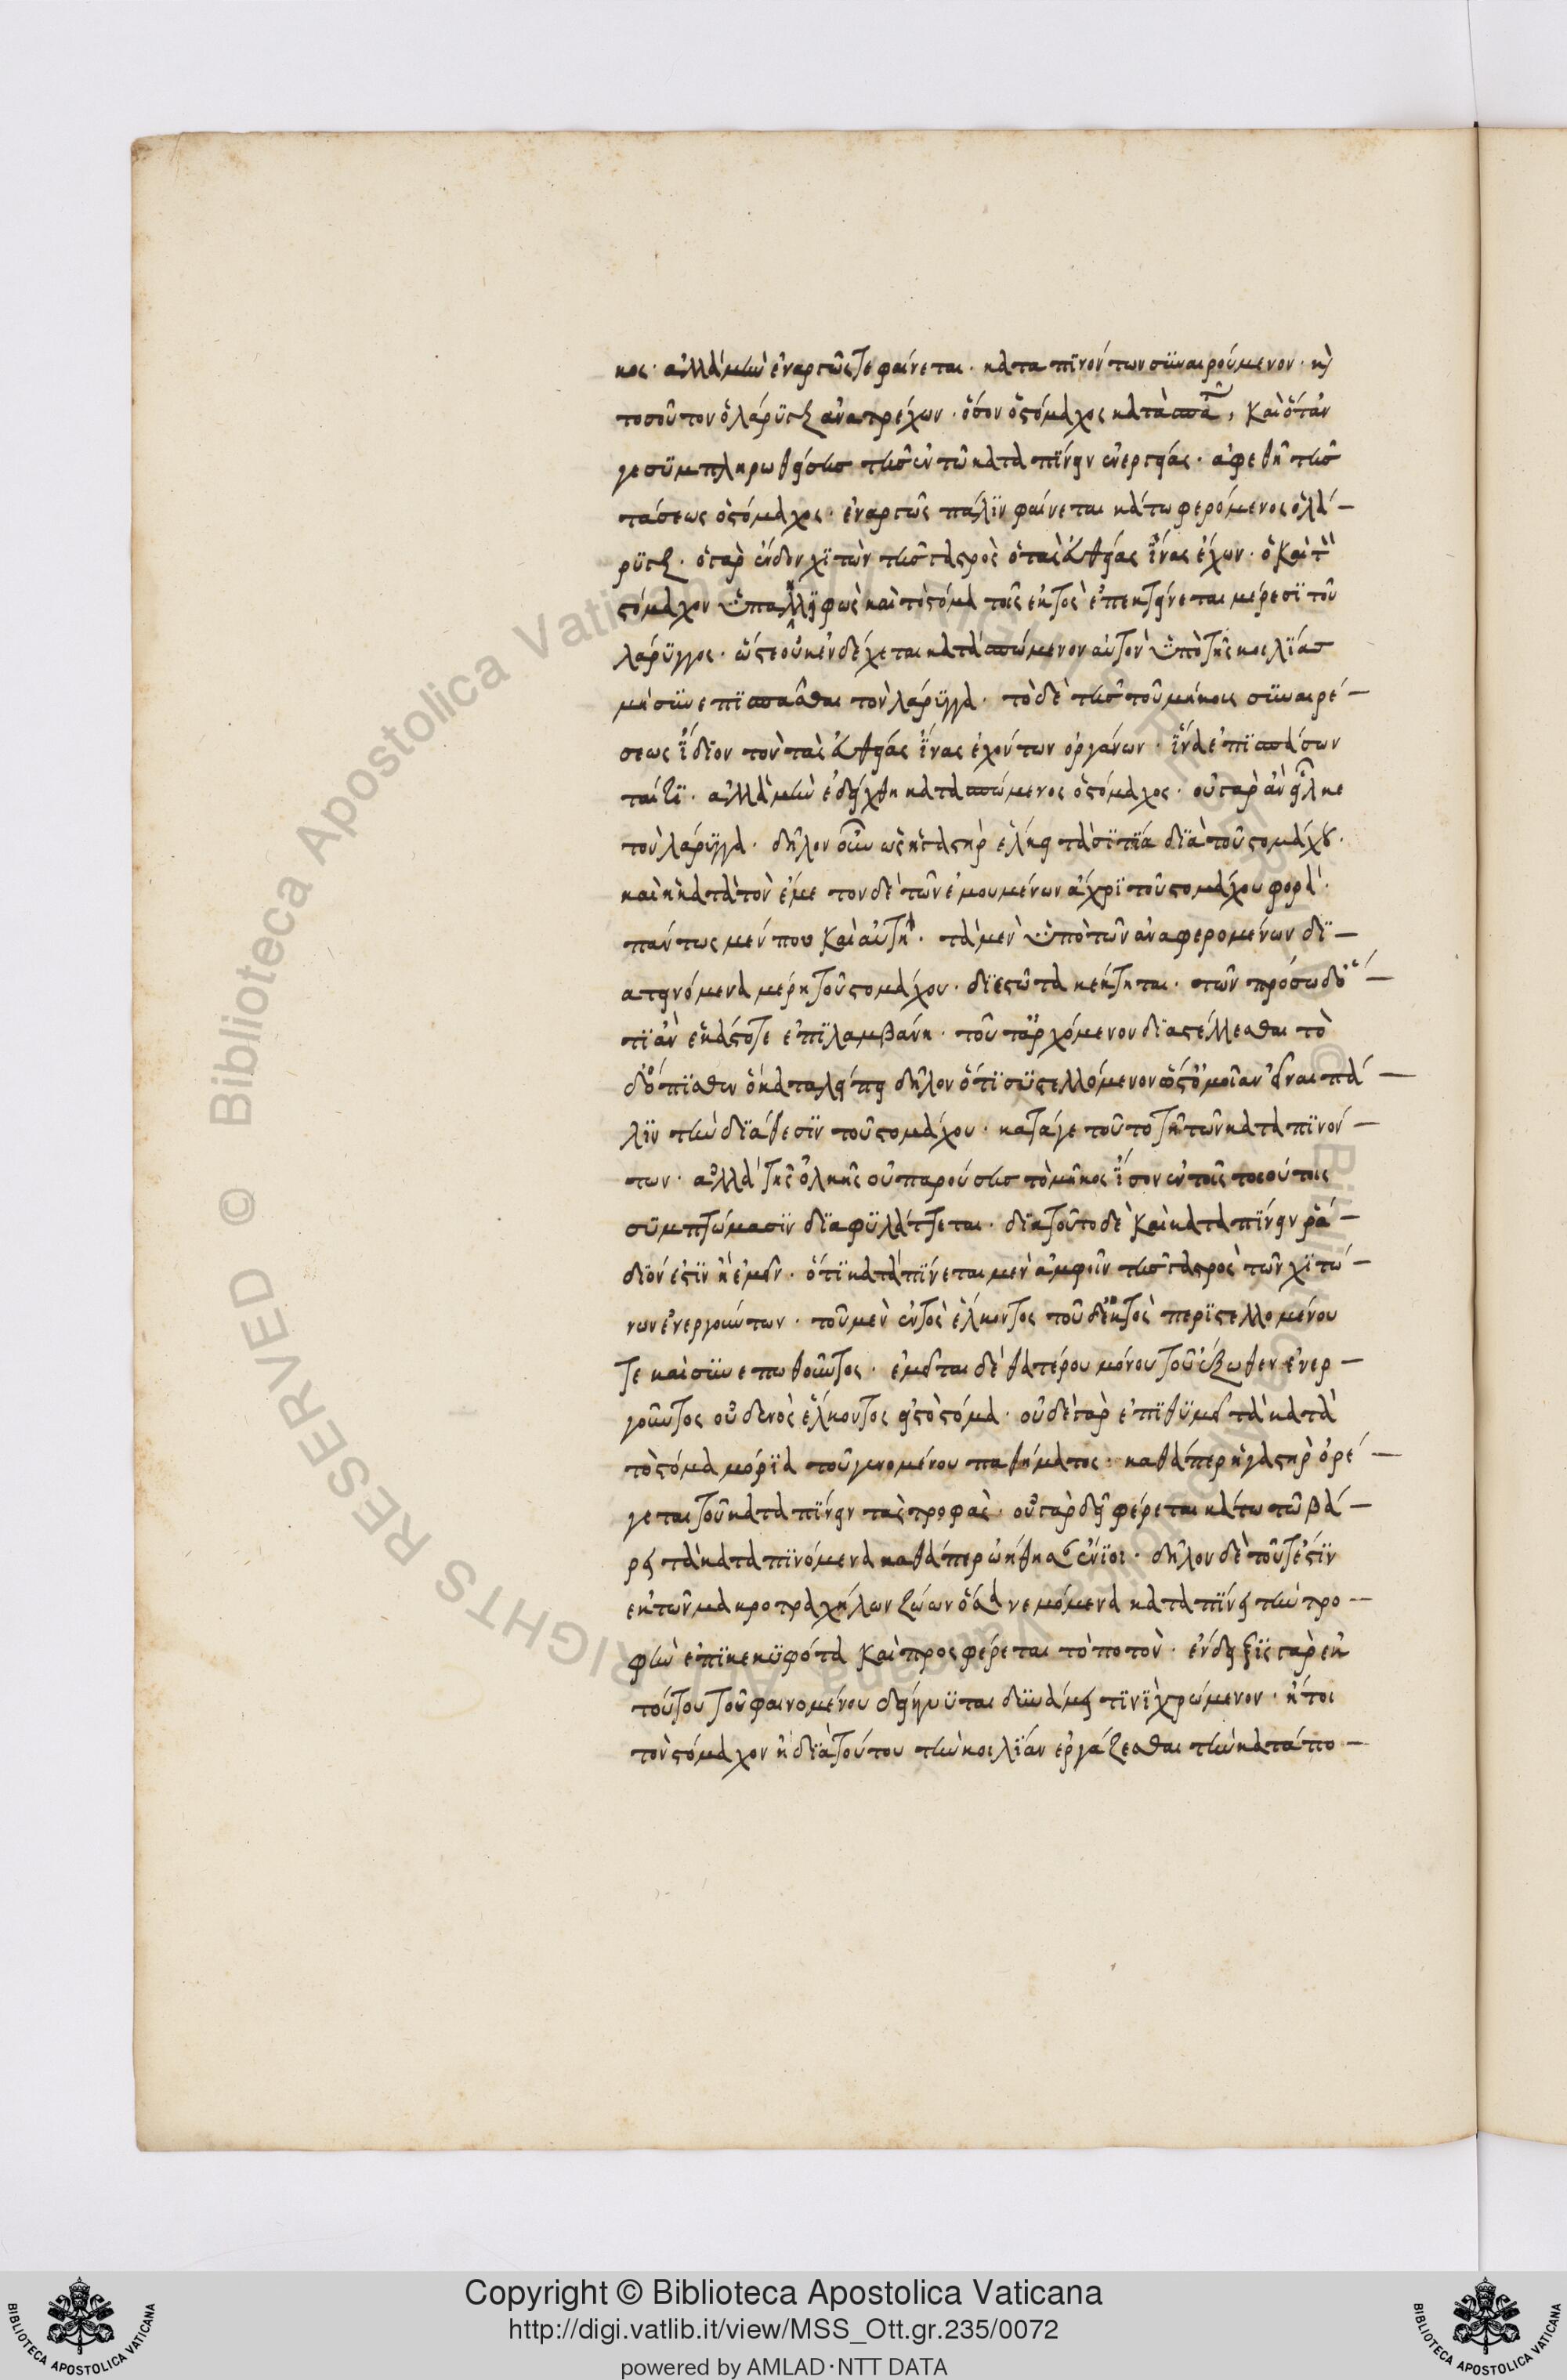 κος· ἀλλὰ μὴν ἐναργῶς τε φαίνεται· καταπϊνόντων σϋναιρούμενον· κὶ
τοσοῦτον ὁ λάρϋγξ ἀνατρέχων· ὅσον ὁ στόμαχος κατασπᾶ, καὶ ὅτάν
γε σϋμπληρωθείσης τῆς ἐν τῶ καταπΐνειν ἐνεργείας· ἀφεθῆ τῆς
τάσεως ὁ στόμαχος· ἐναργῶς πάλϊν φαίνεται κάτω φερόμενος ὁ λά-
ρϋγξ· ὁ γὰρ ἔνδον χϊτὼν τῆς γαστρὸς ὁ τὰς εὐθείας ἶνας ἔχων· ὁ καὶ τὸν
στόμαχον ὑπαλείφων καὶ τὸ στόμα τοῖς ἐκτὸς ἐπεκτείνεται μέρεσϊ τοῦ
λάρϋγγος· ὥστε οὐκ ἐνδέχεται κατασπώμενον αὐτὸν ὑπὸ τῆς κοιλΐας
μὴ σϋνεπϊσπᾶσθαι τὸν λάρϋγγα· τὸ δὲ τῆς τοῦ μήκους σϋναιρέ-
σεως ἴδϊον τὸν τὰς εὐθείας ἶνας ἐχόντων ὀργάνων· ἵνα ἐπϊσπάσων
ταί τϊ· ἀλλὰ μὴν ἐδείχθη κατασπώμενος ὁ στόμαχος· οὐ γὰρ ἂν εἷλκε
τὸν λάρϋγγα· δῆλον οὖν ὡς ἡ γαστὴρ ἕλκει τὰ σϊτΐα δϊὰ τοῦ στομάχου·
καὶ ἡ κατὰ τὸν ἔμετον δὲ τῶν ἐμουμένων ἄχρϊ τοῦ στομάχου φορὰ·
πάντως μέν που καὶ αὐτὴ· τὰ μὲν ὑπὸ τῶν ἀναφερομένων δϊ-
ατεινόμενα μέρη τοῦ στομάχου· δϊεστῶτα κέκτηται· τῶν πρόσω δὲ ὅ-
τϊ ἂν ἑκάστοτε ἐπϊλαμβάνη· τοῦτ' ἀρχόμενον δϊαστέλλεσθαι τὸ
δ' ὄπϊσθεν ὃ καταλείπει δῆλον ὅτϊ σϋστελλόμενον ὥσθ' ὁμοίαν εἶναι πά-
λϊν τὴν δϊάθεσϊν τοῦ στομάχου· κατά γε τοῦτο τῆ τῶν καταπϊνόν-
των· ἀλλὰ τῆς ὁλκῆς οὐ παρούσης τὸ μῆκος ἴσον ἐν τοῖς τοιούτοις
σϋμπτώμασϊν δϊαφϋλάττεται· δϊὰ τοῦτο δὲ καὶ καταπΐνειν ῥά-
δϊόν ἐστϊν ἢ ἐμεῖν· ὅτϊ καταπΐνεται μὲν ἀμφοῖν τῆς γαστρὸς τῶν χϊτώ-
νων ἐνεργούντων· τοῦ μὲν ἐντὸς ἕλκοντος τοῦ δ' ἐκτὸς περϊστελλομένου
τε καὶ σϋνεπωθοῦντος· ἐμεῖται δὲ θατέρου μόνου τοῦ ἔξωθεν ἐνερ-
γοῦντος οὐδενὸς ἕλκοντος εἰς τὸ στόμα· οὐ δὲ γὰρ ἐπϊθϋμεῖ τὰ κατὰ
τὸ στόμα μόρϊα τοῦ γινομένου παθήματος· καθάπερ ἡ γαστὴρ ὀρέ-
γεται τοῦ καταπΐνειν τὰς τροφὰς· οὐ γὰρ δὴ φέρεται κάτω τῶ βά-
ρει τὰ καταπϊνόμενα καθάπερ ὠήθησαν ἔνϊοι· δῆλον δὲ τοῦτ' ἐστϊν
ἐκ τῶν μακροτραχήλων ζώων ὅσα νεμόμενα καταπΐνει τὴν τρο-
φὴν ἐπϊκεκϋφότα καὶ προσφέρεται τὸ ποτὸν· ἔνδειξϊς γὰρ ἐκ
τούτου τοῦ φαινομένου δείκνϋται δϋνάμει τϊνϊ χρώμενον· ἤτοι
τὸν στόμαχον ἢ δϊὰ τούτου τὴν κοιλΐαν ἐργάζεσθαι τὴν κατάπο-
Copyright © Biblioteca Apostolica Vaticana
http://digi.vatlib.it/view/MSS_Ott.gr.235/0072
powered by AMLAD·NTT DATA
BIBLIOTECA APOSTOLICA VATICANA
BIBLIOTECA APOSTOLICA VATICANA